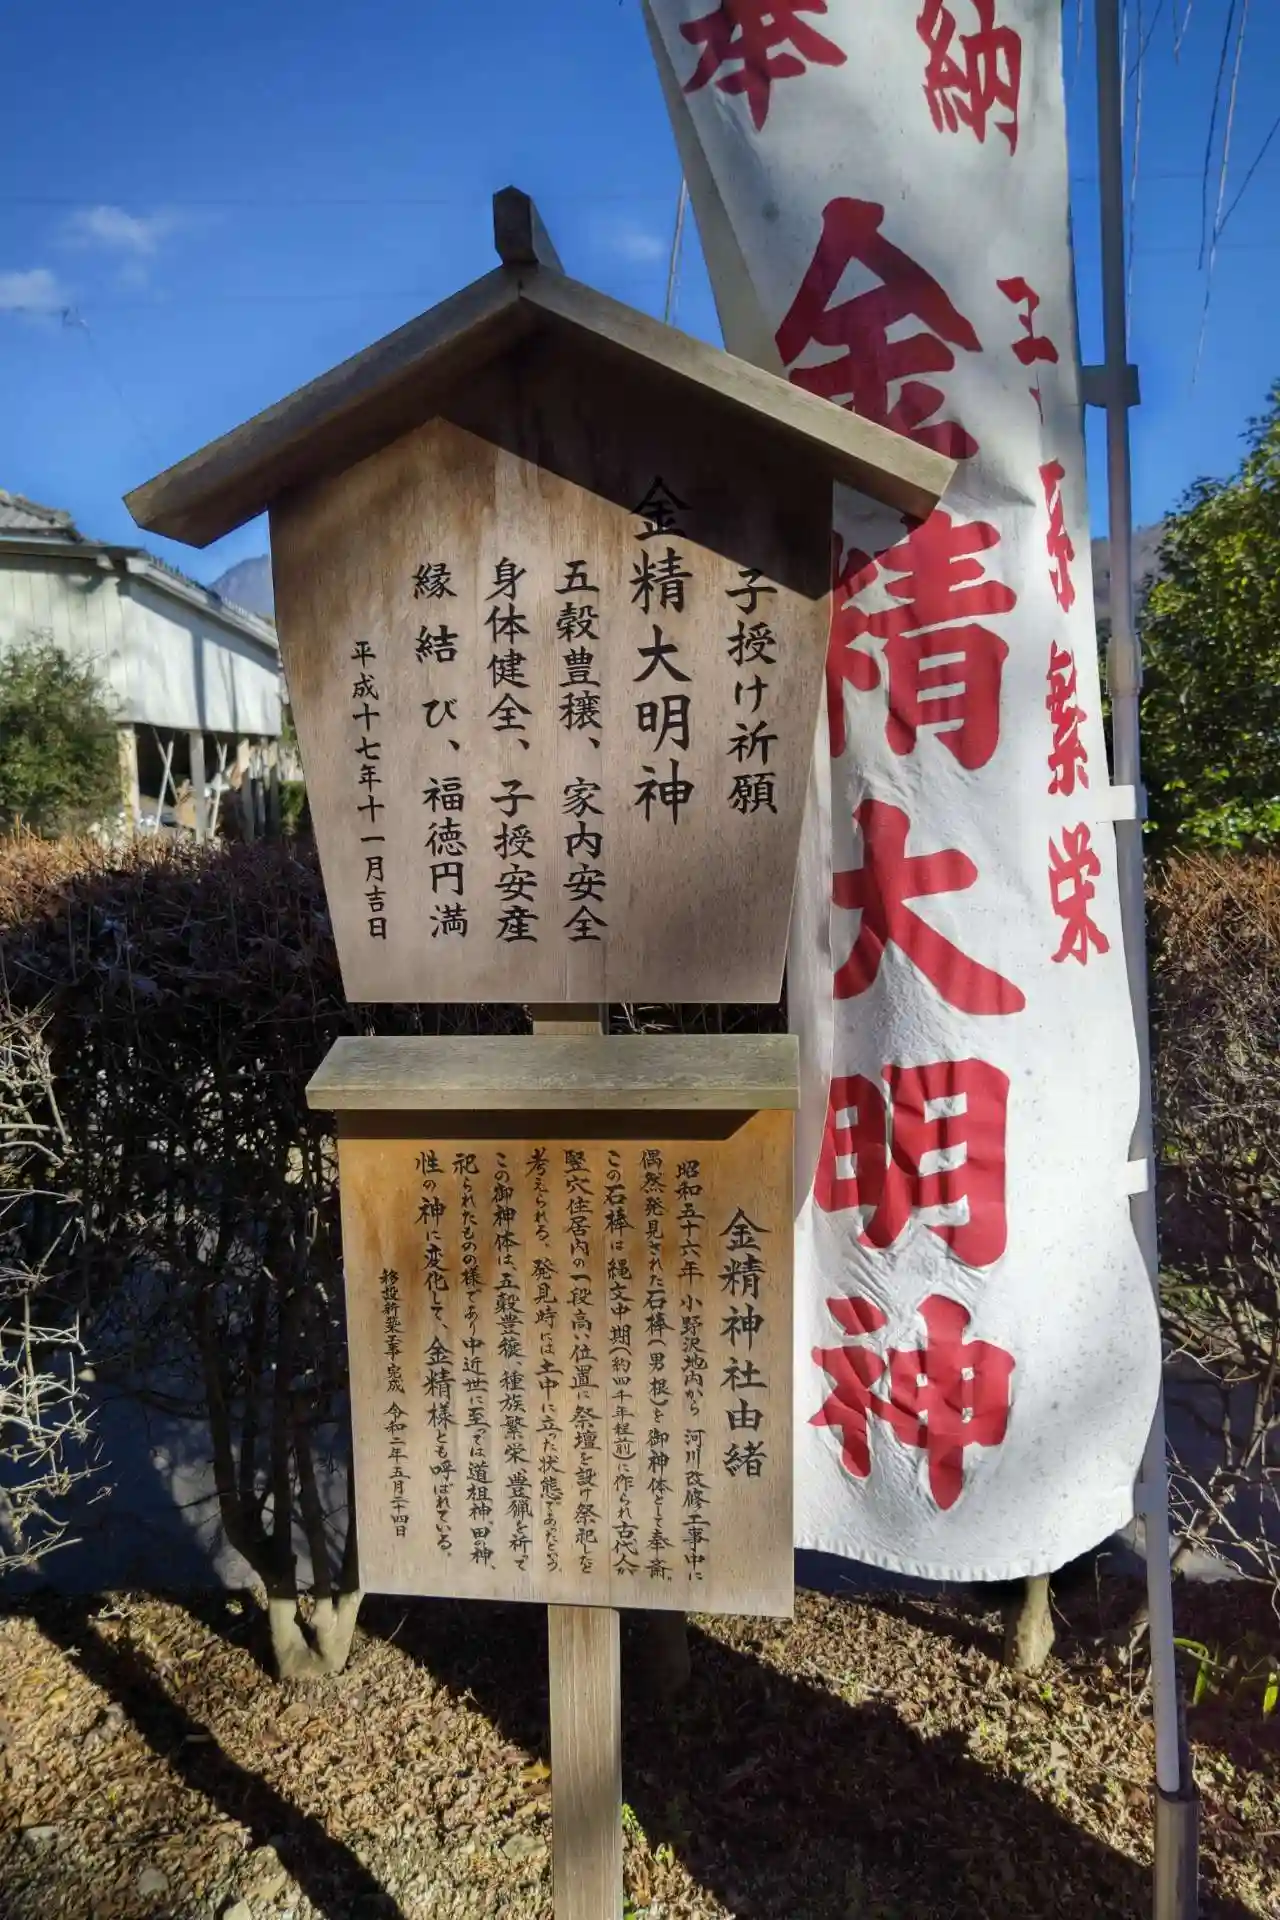 奉納
金精大明神
子孫繁栄
子授け祈願
金精大明神
五穀豊穣、家内安全
身体健全、子授安産
縁結び、福徳円満
平成十七年十一月吉日
金精神社由緒
昭和五十六年 小野沢地内から 河川改修工事中に
偶然発見された石棒(男根)を御神体として奉斎。
この石棒は縄文中期(約四千年程前)に作られ古代人が
竪穴住居内の一段高い位置に祭壇を設け祭祀したと
考えられる、発見時には土中に立った状態であったという。
この御神体は、五穀豊穣、種族繁栄、豊猟を祈って
祀られたものの様であり中近世に至っては道祖神、田の神、
性の神に変化して、金精様とも呼ばれている。
移設新築工事完成 令和二年五月二十四日